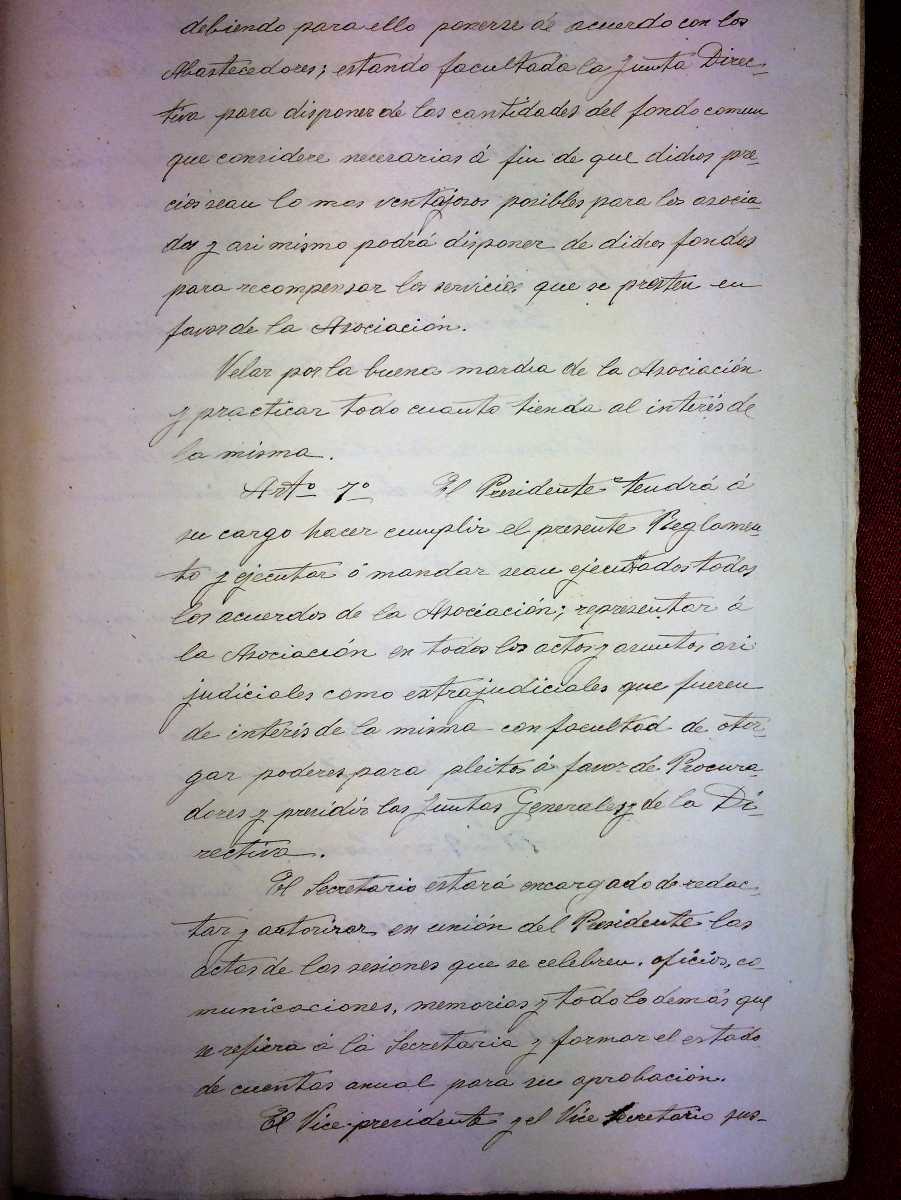 debiendo para ello ponerse de acuerdo con los
Abastecedores; estando facultada la Junta Direc-
tiva para disponer de las cantidades del fondo comun
que considere necesarias á fin de que dichos pre-
cios sean lo mas ventajosos posibles para los asocia-
dos y asi mismo podrá disponer de dichos fondos
para recompensar los servicios que se presten en
favor de la Asociación.
Velar por la buena marcha de la Asociación
y practicar todo cuanto tienda al interés de
la misma.
Artº 7º El Presidente tendrá á
su cargo hacer cumplir el presente Reglamen-
to y ejecutar ó mandar sean ejecutados todos
los acuerdos de la Asociación; representar á
la Asociación en todos los actos y asuntos asi
judiciales como extrajudiciales que fueren
de interés de la misma con facultad de otor-
gar poderes para pleitos á favor de Procura-
dores y presidir las Juntas Generales y de la Di-
rectiva.
El Secretario estará encargado de redac-
tar y autorizar en unión del Presidente las
actas de las sesiones que se celebren, oficios, co-
municaciones, memorias y todo lo demás que
se refiera á la Secretaria y formar el estado
de cuentas anual para su aprobación.
El Vice-presidente y el Vice Secretario sus-